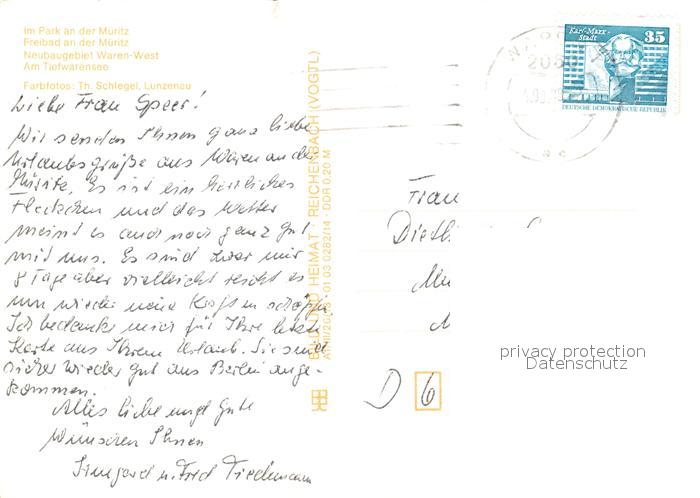 Im Park an der Müritz
Freibad an der Müritz
Neubaugebiet Waren-West
Am Tiefwarensee
Farbfotos: Th. Schlegel, Lunzenau
Liebe Frau Speer!
Wir senden Ihnen ganz liebe
Urlaubsgrüße aus Waren an der
Müritz. Es ist ein herrliches
Fleckchen und das Wetter
meint es auch noch ganz gut
mit uns. Es sind zwar nur
8 Tage aber vielleicht reicht es
um wieder neue Kräfte schöpfen.
Ich bedanke mich für Ihre liebe
Karte aus Ihrem Urlaub. Sie sind
sicher wieder gut aus Berlin ange-
kommen.
Alles liebe und Gute
Wünschen Ihnen
Irmgard u. Fred Tiedemann
BILD UND HEIMAT · REICHENBACH (VOGTL)
01 03 0282/14 · DDR 0,20 M
Karl-Marx-
Stadt
35
DEUTSCHE DEMOKRATISCHE REPUBLIK
2060
Frau
D 6
privacy protection
Datenschutz